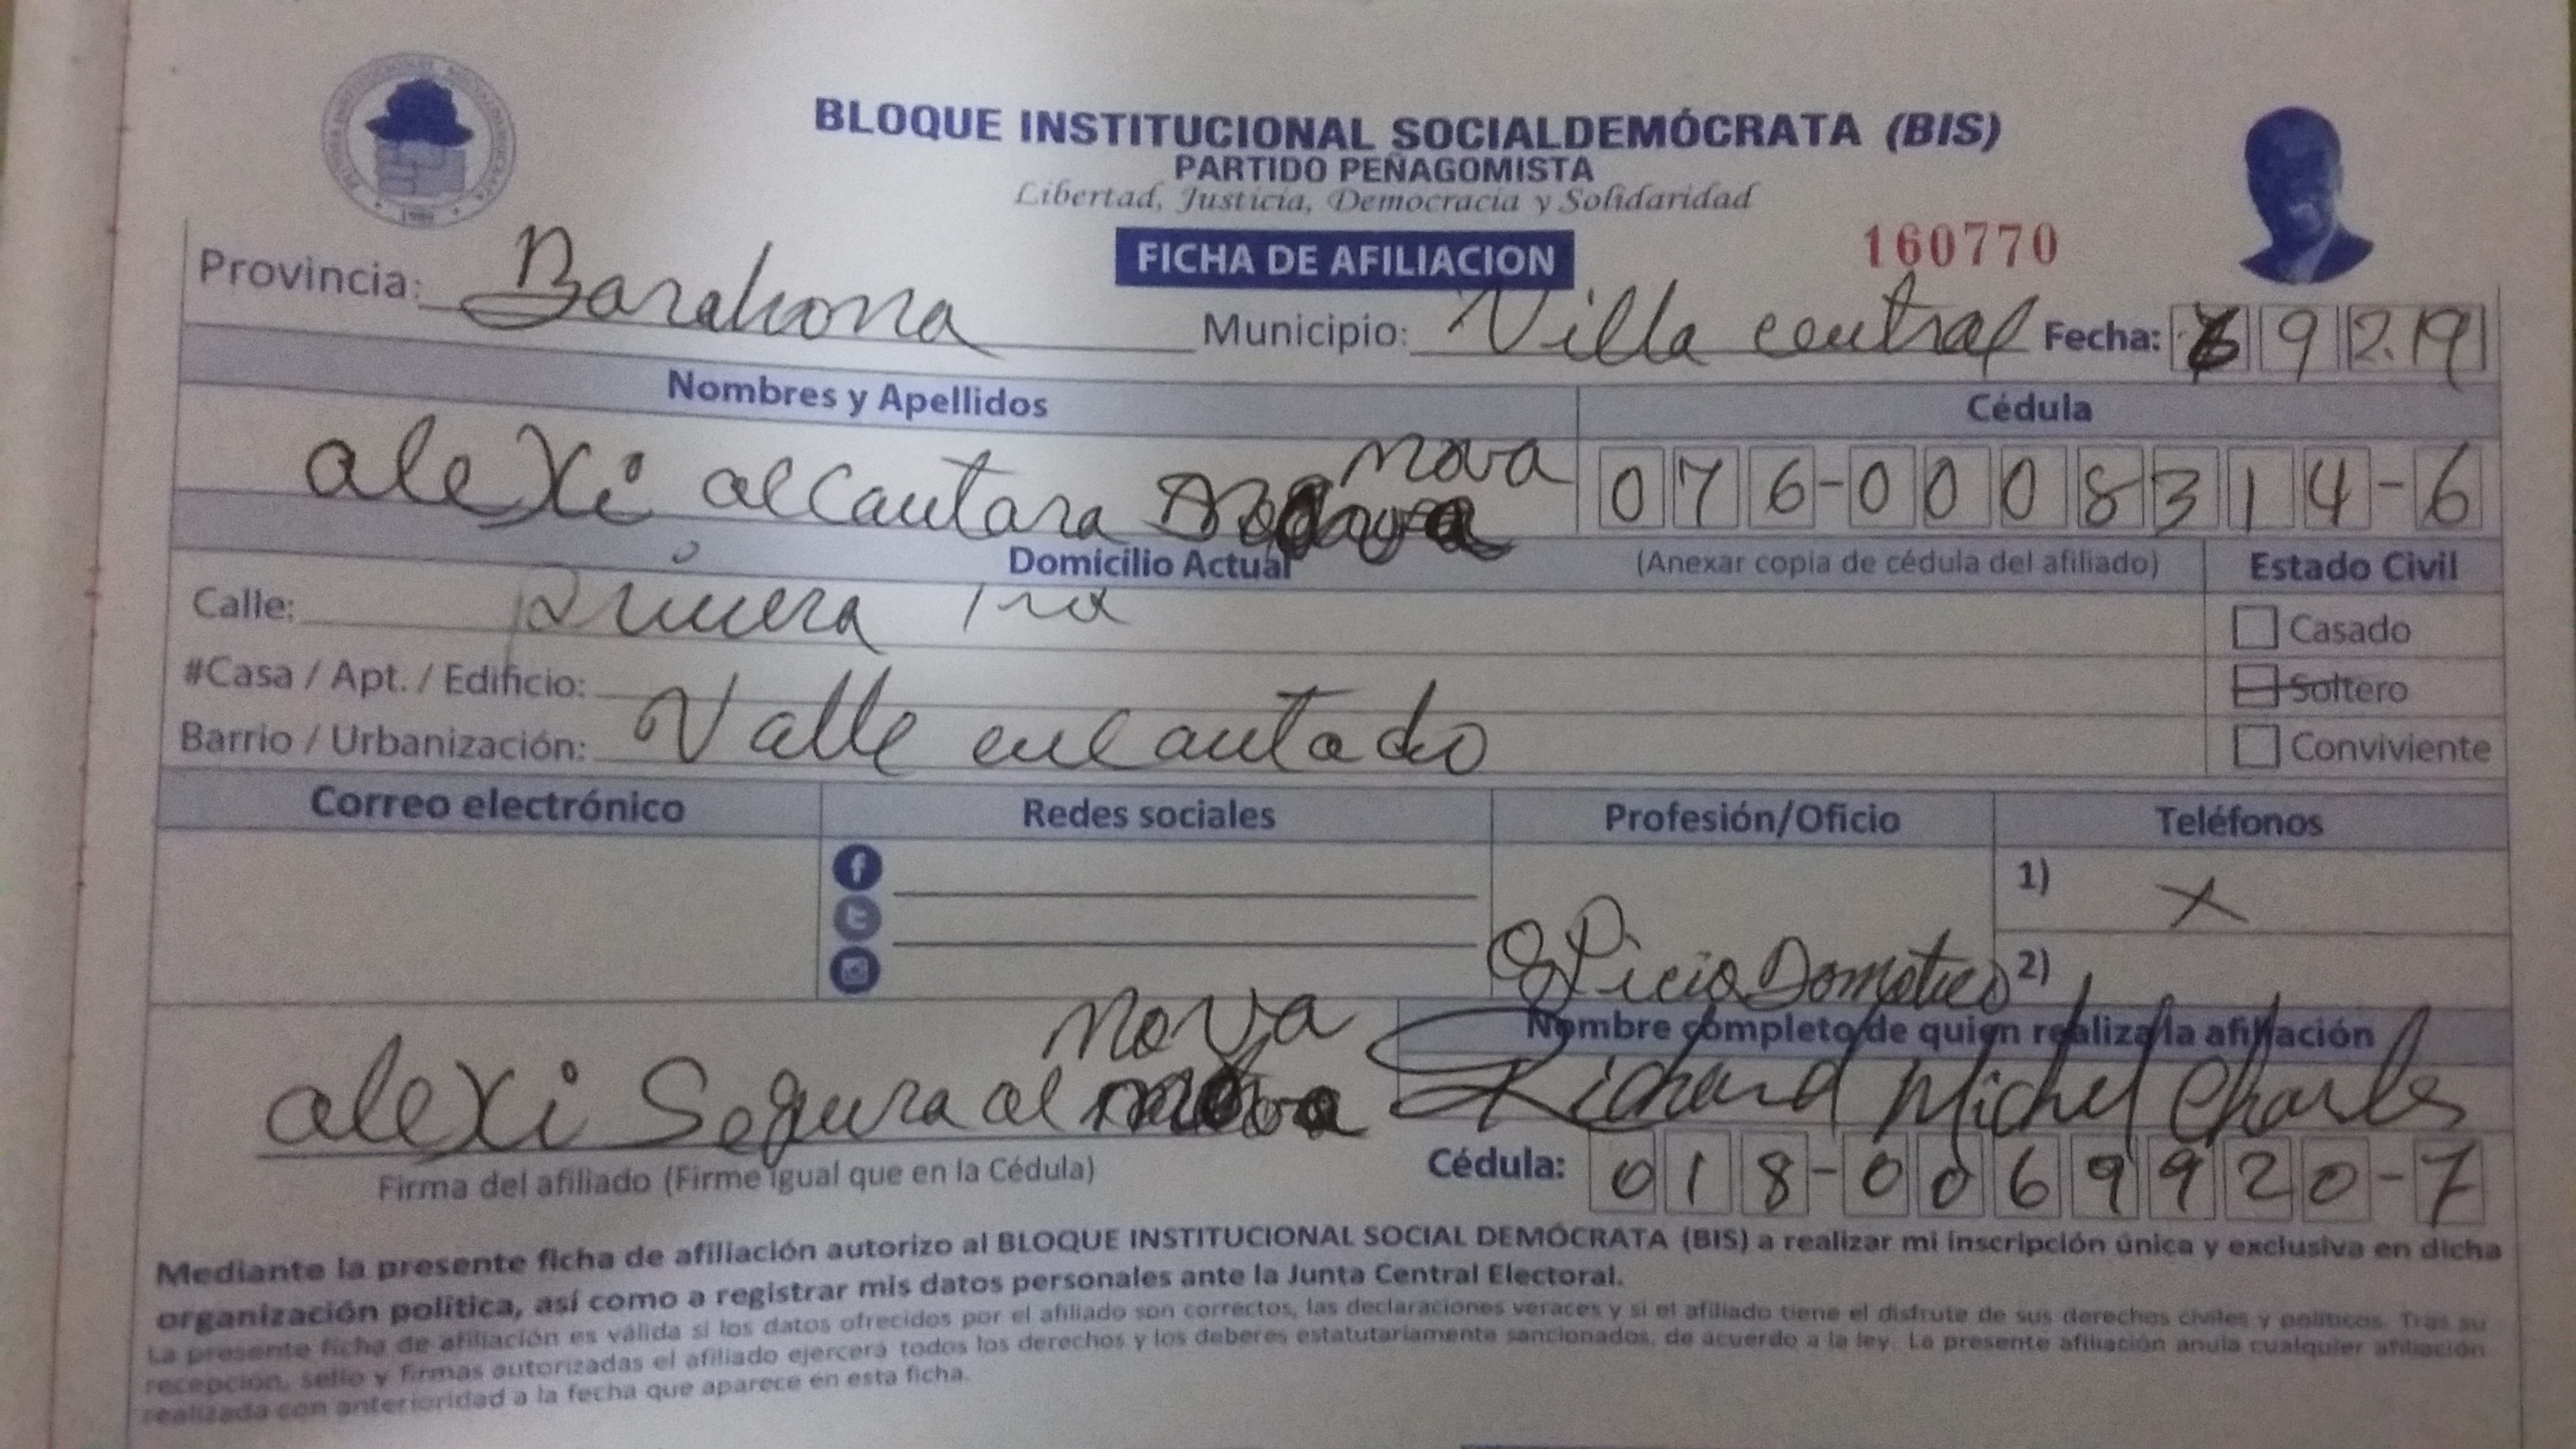 BLOQUE INSTITUCIONAL SOCIALDEMÓCRATA (BIS)
PARTIDO PEÑAGOMISTA
Libertad, Justicia, Democracia y Solidaridad
FICHA DE AFILIACION
160770
Provincia: Barahona
Municipio: Villa central Fecha: 6 9 2.19
Nombres y Apellidos
Cédula
alexi alcantara nova
076-0008314-6
Domicilio Actual
(Anexar copia de cédula del afiliado)
Estado Civil
Calle:
Casado
#Casa / Apt. / Edificio:
Soltero
Barrio / Urbanización: Valle encantado
Conviviente
Correo electrónico
Redes sociales
Profesión/Oficio
Teléfonos
1) X
2)
Nombre completo de quien realiza la afiliación
alexi Segura al nova
Richard Michel Charles
Firma del afiliado (Firme igual que en la Cédula)
Cédula: 018-0069920-7
Mediante la presente ficha de afiliación autorizo al BLOQUE INSTITUCIONAL SOCIAL DEMÓCRATA (BIS) a realizar mi inscripción única y exclusiva en dicha
organización política, así como a registrar mis datos personales ante la Junta Central Electoral.
La presente ficha de afiliación es válida si los datos ofrecidos por el afiliado son correctos, las declaraciones veraces y si el afiliado tiene el disfrute de sus derechos civiles y políticos. Tras su
recepción, sello y firmas autorizadas el afiliado ejercerá todos los derechos y los deberes estatutariamente sancionados, de acuerdo a la ley. La presente afiliación anula cualquier afiliación
realizada con anterioridad a la fecha que aparece en esta ficha.